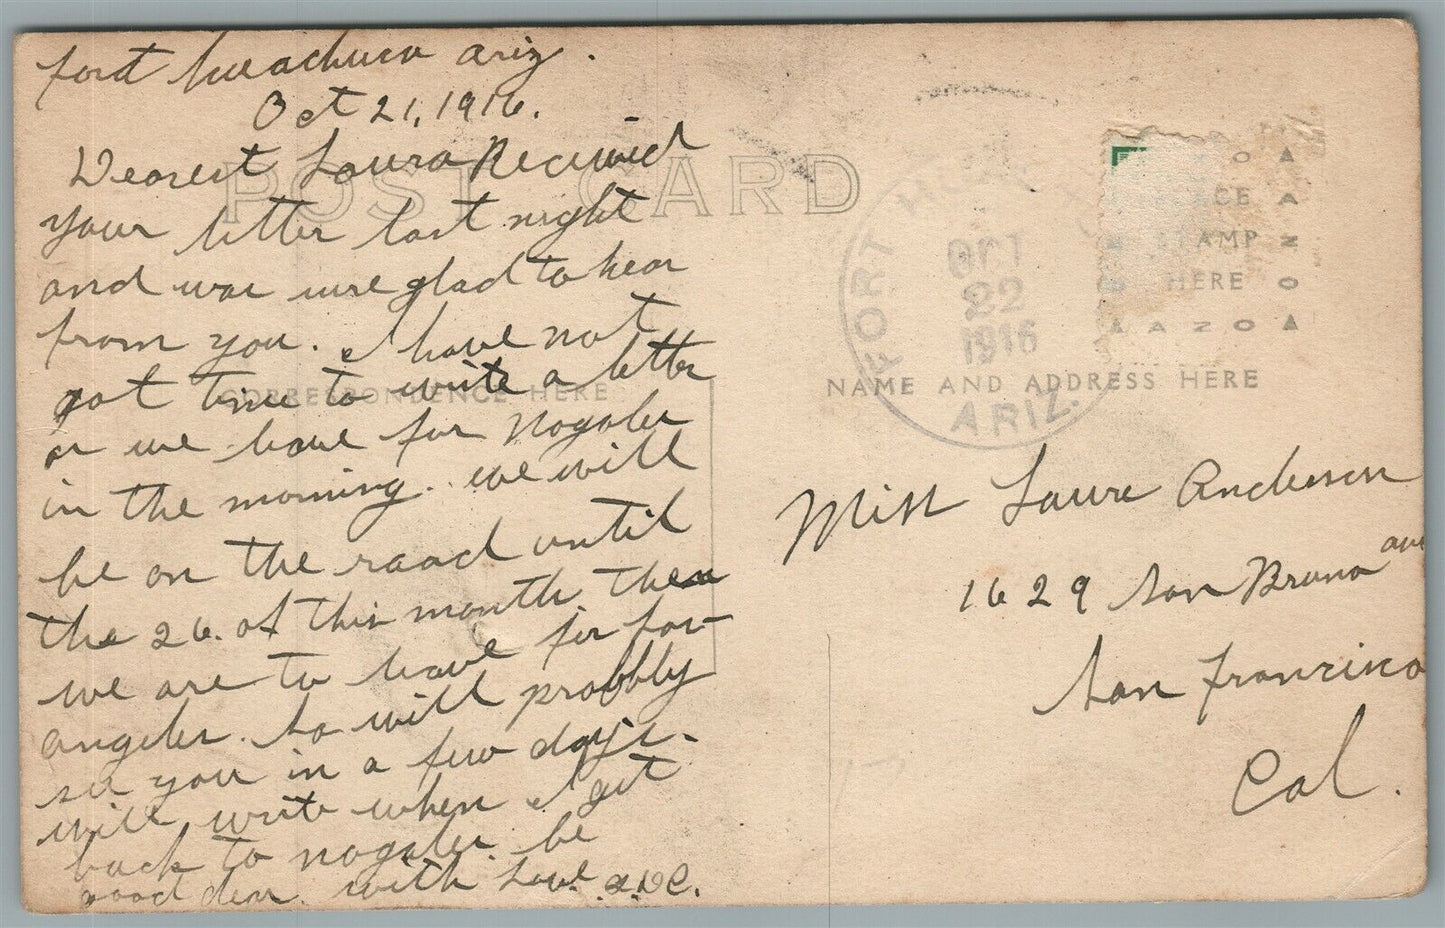 fort huachuca ariz.
Oct 21, 1916.
Dearest Laura Recieved
your letter last night
and was sure glad to hear
from you. I have not
got time to write a letter
as we leave for Nogales
in the morning. we will
be on the raod until
the 26. of this month then
we are to leave for los-
angeles. so will probbly
see you in a few days.
will write when I get
back to nogales. be
good dear. with Love.
POST CARD
CORRESPONDENCE HERE
NAME AND ADDRESS HERE
PLACE
STAMP
HERE
AZO
FORT
OCT
22
1916
ARIZ.
Miss Laura Anderson
1629 San Bruno ave
San Francisco
Cal.